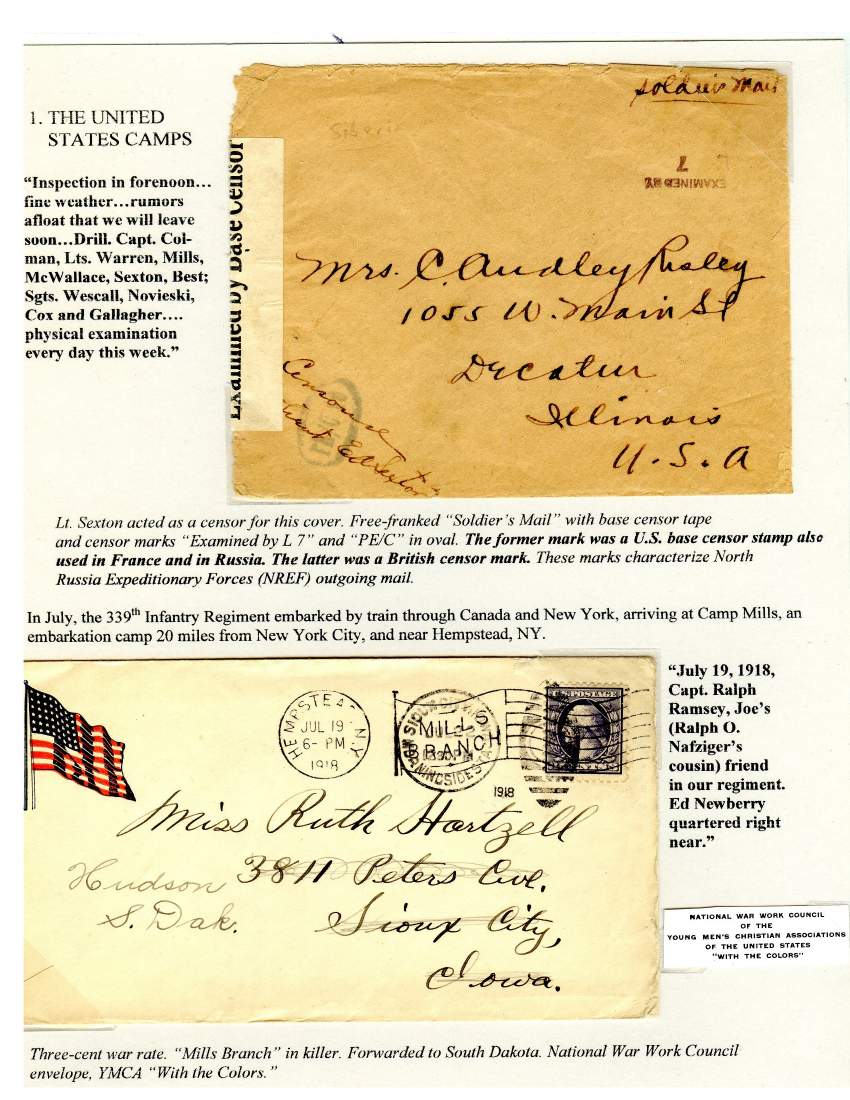 1. THE UNITED
STATES CAMPS
“Inspection in forenoon…
fine weather…rumors
afloat that we will leave
soon…Drill. Capt. Col-
man, Lts. Warren, Mills,
McWallace, Sexton, Best;
Sgts. Wescall, Novieski,
Cox and Gallagher….
physical examination
every day this week.”
Soldier's Mail
Siberia
EXAMINED BY
7
Examined by Base Censor
Mrs. C. Audley Risley
1055 W. Main St
Decatur
Illinois
U.S.A
Censored
Lieut Ed Sexton
Lt. Sexton acted as a censor for this cover. Free-franked “Soldier’s Mail” with base censor tape
and censor marks “Examined by L 7” and “PE/C” in oval. The former mark was a U.S. base censor stamp also
used in France and in Russia. The latter was a British censor mark. These marks characterize North
Russia Expeditionary Forces (NREF) outgoing mail.
In July, the 339th Infantry Regiment embarked by train through Canada and New York, arriving at Camp Mills, an
embarkation camp 20 miles from New York City, and near Hempstead, NY.
HEMPSTEA N.Y.
JUL 19
6- PM
1918
MILLS
BRANCH
SIOUX CITY
MORNINGSIDE STA
1918
U.S. POSTAGE
Miss Ruth Hartzell
3811 Peters Ave.
Sioux City,
Iowa.
Hudson
S. Dak.
“July 19, 1918,
Capt. Ralph
Ramsey, Joe’s
(Ralph O.
Nafziger’s
cousin) friend
in our regiment.
Ed Newberry
quartered right
near.”
NATIONAL WAR WORK COUNCIL
OF THE
YOUNG MEN'S CHRISTIAN ASSOCIATIONS
OF THE UNITED STATES
"WITH THE COLORS"
Three-cent war rate. “Mills Branch” in killer. Forwarded to South Dakota. National War Work Council
envelope, YMCA “With the Colors.”